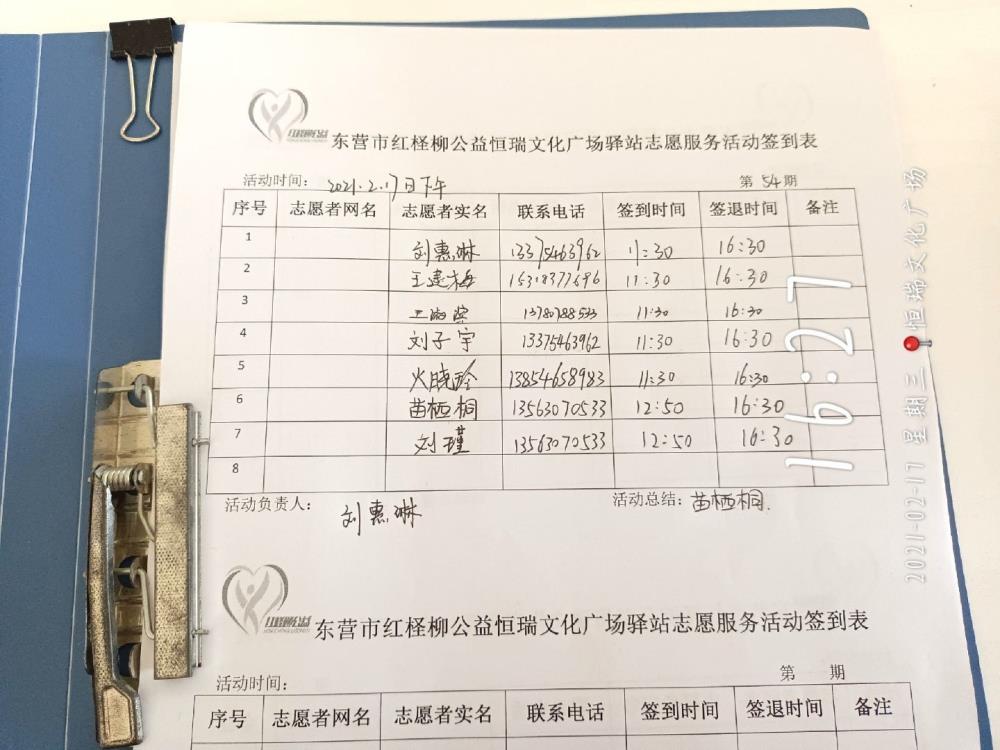 红柽柳公益
东营市红柽柳公益恒瑞文化广场驿站志愿服务活动签到表
活动时间: 2021.2.17日下午 第 54 期
序号 志愿者网名 志愿者实名 联系电话 签到时间 签退时间 备注
1 刘惠琳 13375463962 11:30 16:30
2 王建梅 11:30 16:30
3 11:30 16:30
4 刘子宇 13375463962 11:30 16:30
5 火晓玲 13854658983 11:30 16:30
6 苗栖桐 13563070533 12:50 16:30
7 刘瑾 13563070533 12:50 16:30
8
活动负责人: 刘惠琳 活动总结: 苗栖桐.
红柽柳公益
东营市红柽柳公益恒瑞文化广场驿站志愿服务活动签到表
活动时间: 第 期
序号 志愿者网名 志愿者实名 联系电话 签到时间 签退时间 备注
16:27
2021-02-17 星期三 恒瑞文化广场